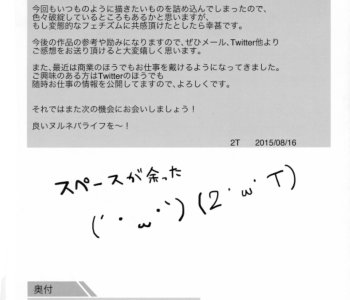 今回もいつものように描きたいものを詰め込んでしまったので、
色々破綻しているところもあるかと思いますが、
もし変態的なフェチズムに共感頂けたとしたら幸甚です。
今後の作品の参考や励みになりますので、ぜひメール、Twitter他より
ご感想をお送り頂けると大変嬉しく思います。
また、最近は商業のほうでもお仕事を戴けるようになってきました。
ご興味のある方はTwitterのほうでも
随時お仕事の情報を公開してますので、よろしくです。
それではまた次の機会にお会いしましょう!
良いヌルネバライフを〜!
2T 2015/08/16
スペースが余った
(´・ω・`) (2・ω・T)
奥付